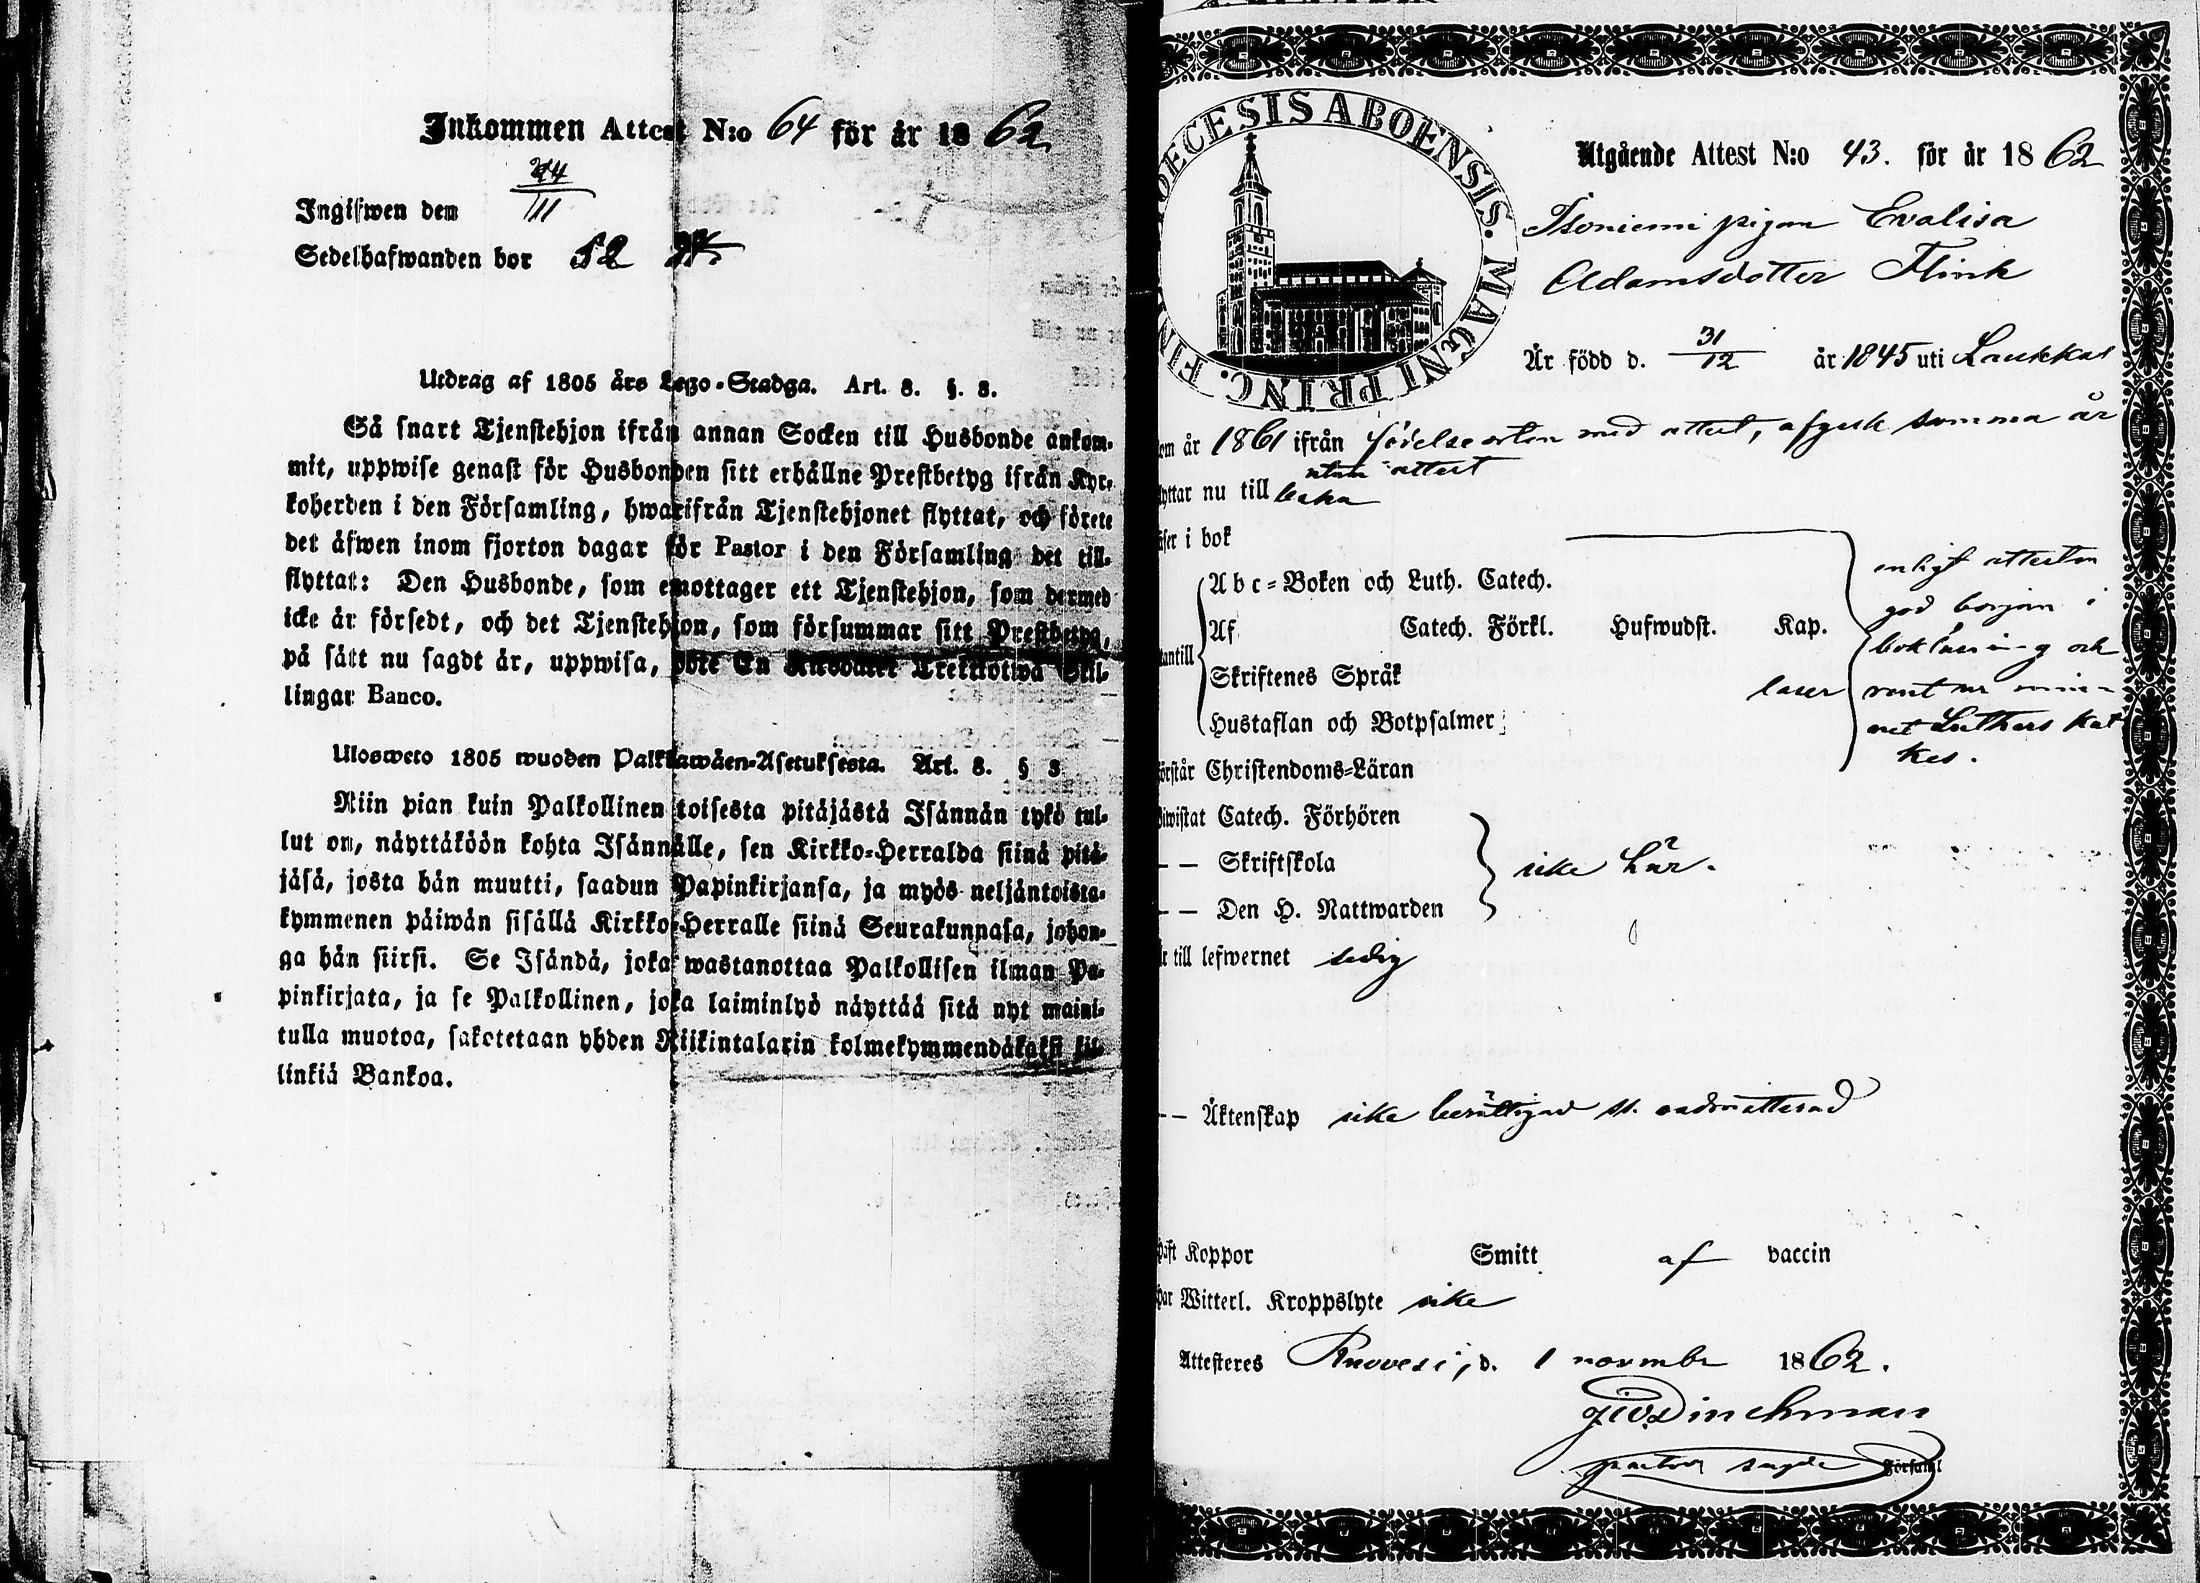 Inkommen Attest N:o 64 för år 1862
24
Ingifwen den 11
Sedelhafwanden bor 52
Utdrag af 1805 års Lego-Stadga. Art. 8. §. 8.
Så snart Tjenstehjon ifrån annan Socken till Husbonde ankom-
mit, uppwise genast för Husbonden sitt erhållne Prestbetyg ifrån Kyr-
koherden i den Församling, hwarifrån Tjenstehjonet flyttat, och förete
det äfwen inom fjorton dagar för Pastor i den Församling det till-
flyttat: Den Husbonde, som emottager ett Tjenstehjon, som dermed
icke är försedt, och det Tjenstehjon, som försummar sitt Prestbetyg,
på sätt nu sagdt är, uppwisa, böte En Riksdaler Trettiotwå Skil-
lingar Banco.
Ulosweto 1805 wuoden Palkkawäen-Asetuksesta. Art. 8. § 8
Niin pian kuin Palkollinen toisesta pitäjästä Isännän tykö tul-
lut on, näyttäköön kohta Isännälle, sen Kirkko-Herralda siinä pitä-
jäsä, josta hän muutti, saadun Papinkirjansa, ja myös neljäntoista-
kymmenen päiwän sisällä Kirkko-Herralle siinä Seurakunnasa, johon-
ga hän siirsi. Se Isändä, joka wastanottaa Palkollisen ilman Pa-
pinkirjata, ja se Palkollinen, joka laiminlyö näyttää sitä nyt maini-
tulla muotoa, sakotetaan yhden Riikintalarin kolmekymmendäkaksi kil-
linkiä Bankoa.
DIOECESIS ABOENSIS. MAGNI PRINC. FIN
Utgående Attest N:o 43. för år 1862
Isoniemi pigan Evalisa
Adamsdotter Flink
Är född d. 31/12 år 1845 uti Laukkas
om år 1861 ifrån födelseorten med attest, afgick samma år
utan attest
lyttar nu till
äser i bok
Abc-Boken och Luth. Catech.
Af Catech. Förkl. Hufwudst. Kap.
antill
Skriftenes Språk
Hustaflan och Botpsalmer
läser
enligt attesten
god början i
bokläsning och
utur min-
net Luthers kat
kes.
örstår Christendoms-Läran
iwistat Catech. Förhören
— — Skriftskola
— — Den H. Nattwarden
icke här.
r till lefwernet sedig
— — Äktenskap icke berättigad st. oadmitterad
haft Koppor Smitt af vaccin
har Witterl. Kroppslyte icke
Attesteres Ruovesi, d. 1 november 1862.
pastor Församl